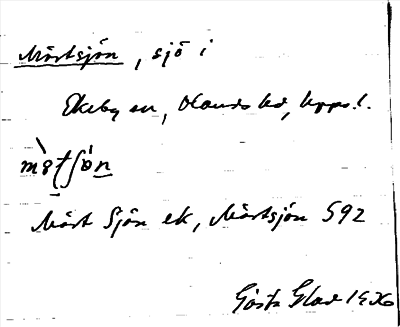 Mörtsjön, sjö i
Ekeby sn, Olands hd, Upps. l.
Mört Sjön ek, Mörtsjön 592
Gösta